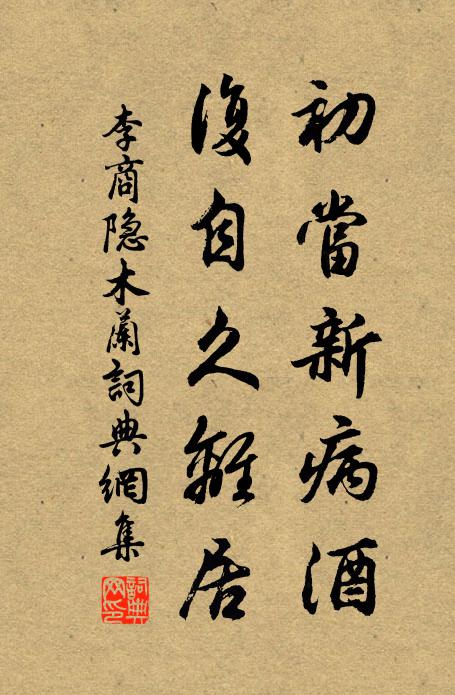 初當新病酒
復自久離居
李商隐木蘭詞典網集
詞典網印